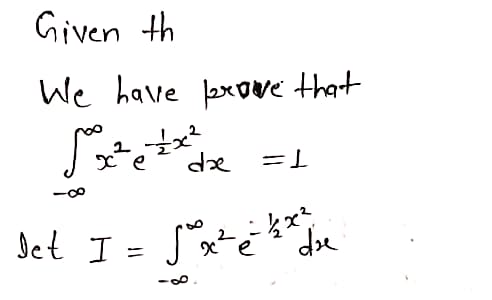 Given th
We have prove that
∫_{-∞}^{∞} x² e^{-½x²} dx = 1
Let I = ∫_{-∞}^{∞} x² e^{-½x²} dx